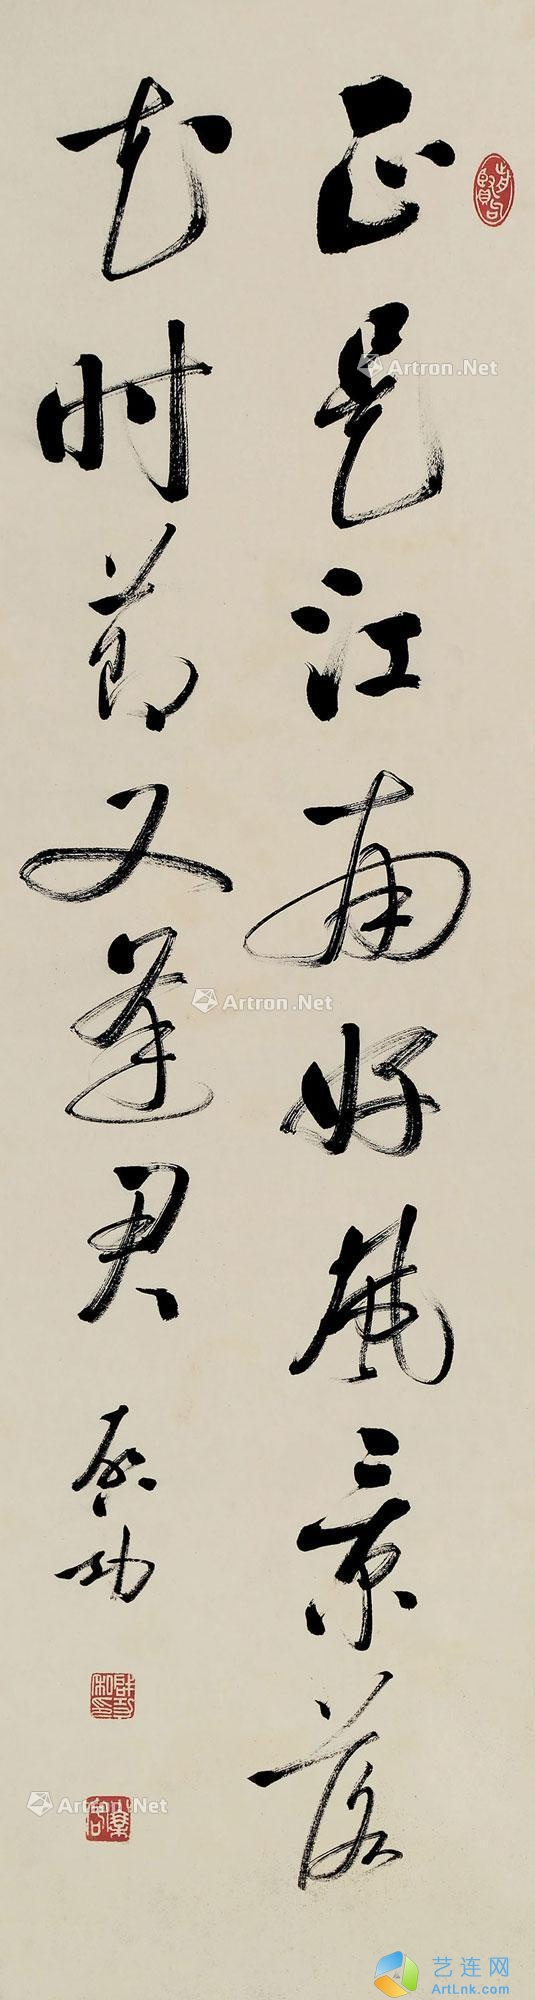 正是江南好风景落
花时节又逢君
启功
Artron.Net
Artron.Net
Artron.Net
艺连网
ArtLnk.com